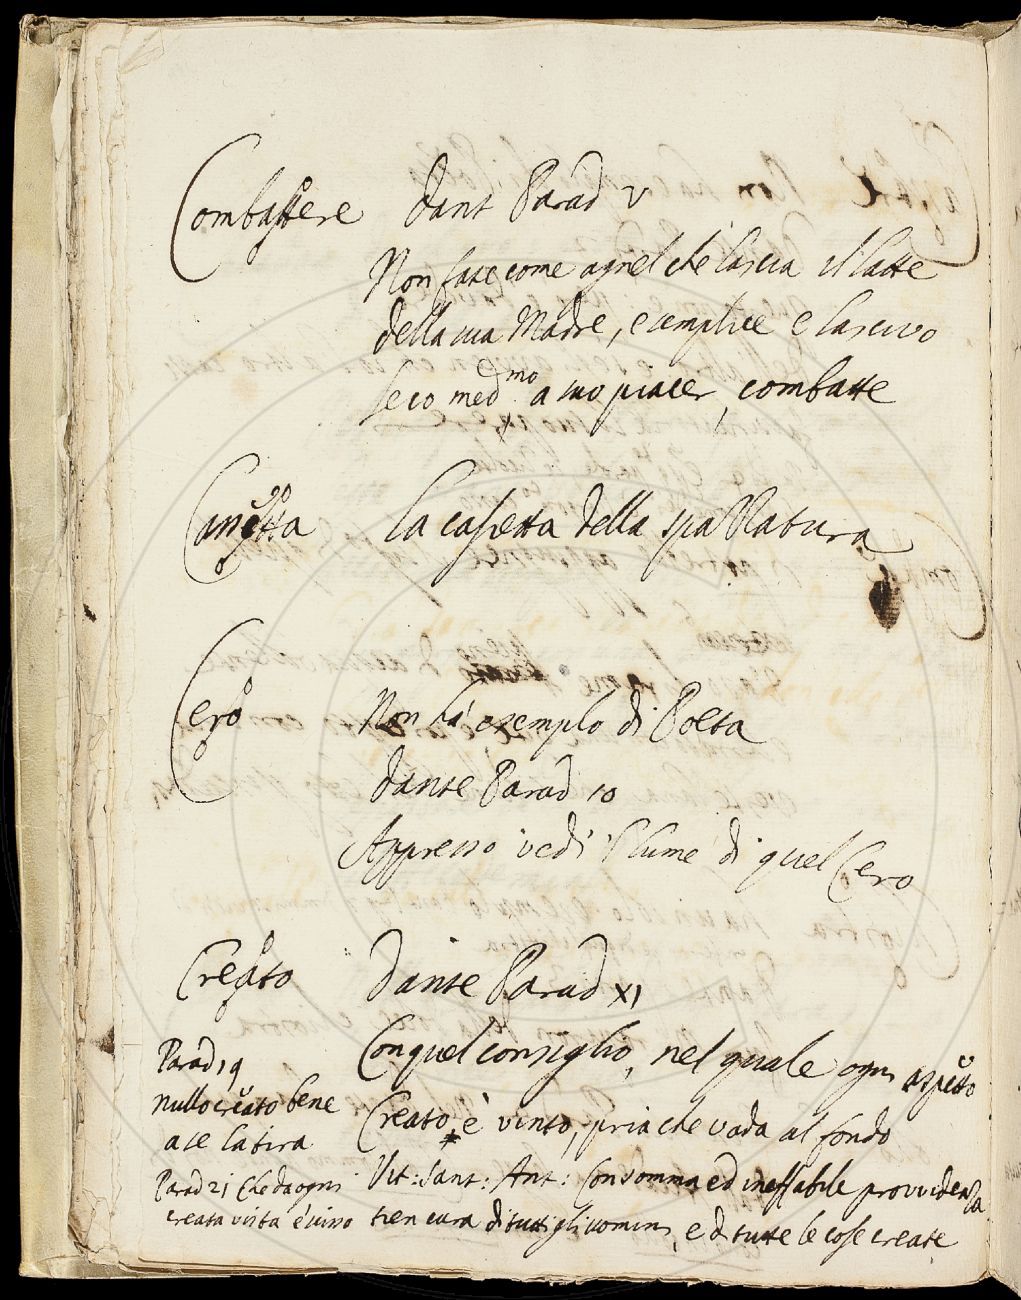 Combattere Dant Parad V
Non fate come agnel che lascia il latte
della sua Madre, e semplice e lascivo
seco med.mo a suo piacer combatte
La cassetta della spazzatura
Cero
Non há esemplo di Poeta
Dante Parad 10
Appresso vedi 'l lume di quel Cero
Creato Dante Parad XI
Con quel consiglio, nel quale ogni aspetto
Creato è vinto, pria che vada al fondo
Parad 19
nullo creato bene
a se la tira
Parad 21 che da ogni
creata vista é
Vit: Sant: Ant: Con somma ed ineffabile provvidenza
tien cura di tutti gli uomini, e di tutte le cose create